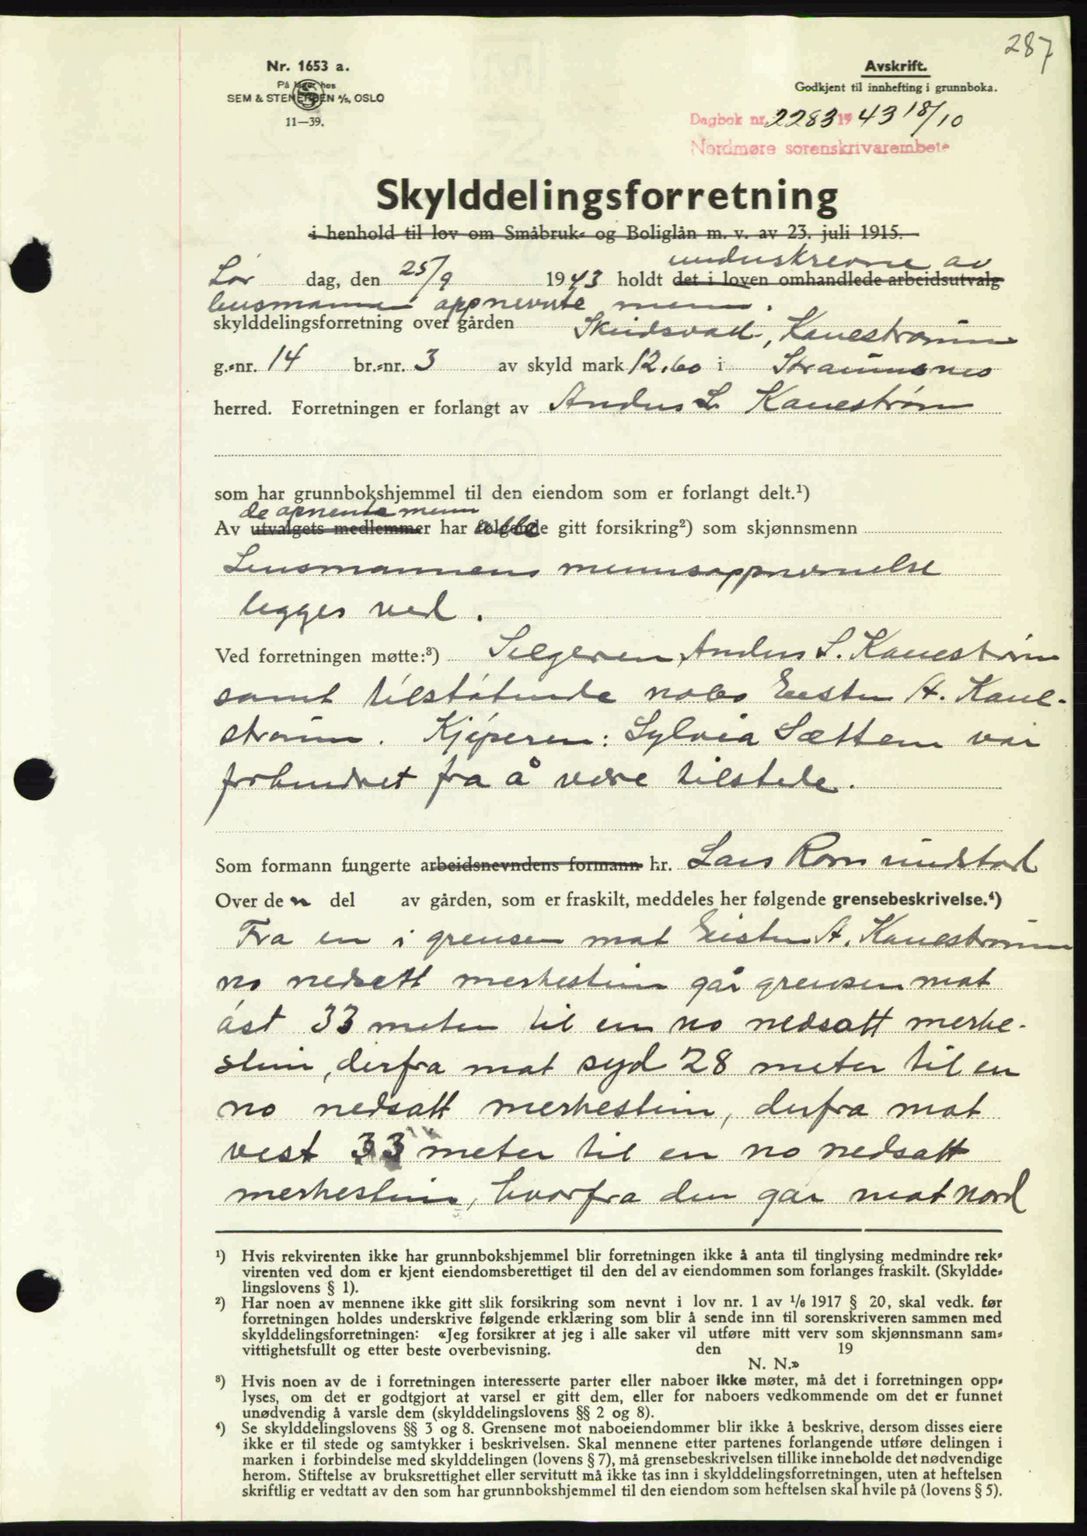 287
Nr. 1653 a.
På lager hos
SEM & STENERSEN A/S, OSLO
11—39.
Avskrift.
Godkjent til innhefting i grunnboka.
Dagbok nr. 2283 1943 18/10
Nordmøre sorenskrivarembete
Skylddelingsforretning
i henhold til lov om Småbruk- og Boliglån m. v. av 23. juli 1915.
underskrevne av
Lør dag, den 25/9 1943 holdt det i loven omhandlede arbeidsutvalg
lensmannen oppnevnte menn.
skylddelingsforretning over gården Skeidsvad, Kanestraumm
g.-nr. 14 br.-nr. 3 av skyld mark 12.60 i Straumsnes
herred. Forretningen er forlangt av Anders L. Kanestrøm
som har grunnbokshjemmel til den eiendom som er forlangt delt.¹)
de opnevnte menn
Av utvalgets medlemmer har alle gitt forsikring²) som skjønnsmenn
Lensmannens mennsoppnevnelse
legges ved.
Ved forretningen møtte:³) Selgeren, Anders L. Kanestrøm
samt tilstøtende nabo Eisten A. Kane-
straum. Kjøperen: Sylvia Sættem var
forhindret fra å være tilstede.
Som formann fungerte arbeidsnevndens formann hr. Lars Romundstad
Over de n del av gården, som er fraskilt, meddeles her følgende grensebeskrivelse.⁴)
Fra en i grensen mot Eisten A. Kanestraumm
no nedsatt merkestein går grensen mot
øst 33 meter til en no nedsatt merke-
stein, derfra mot syd 28 meter til en
no nedsatt merkestein, derfra mot
vest 33 meter til en no nedsatt
merkestein, hvorfra den går mot nord
¹) Hvis rekvirenten ikke har grunnbokshjemmel blir forretningen ikke å anta til tinglysing medmindre rek-
virenten ved dom er kjent eiendomsberettiget til den del av eiendommen som forlanges fraskilt. (Skyldde-
lingslovens § 1).
²) Har noen av mennene ikke gitt slik forsikring som nevnt i lov nr. 1 av 1/6 1917 § 20, skal vedk. før
forretningen holdes underskrive følgende erklæring som blir å sende inn til sorenskriveren sammen med
skylddelingsforretningen: «Jeg forsikrer at jeg i alle saker vil utføre mitt verv som skjønnsmann sam-
vittighetsfullt og etter beste overbevisning. den 19
N. N.»
³) Hvis noen av de i forretningen interesserte parter eller naboer ikke møter, må det i forretningen opp-
lyses, om det er godtgjort at varsel er gitt dem, eller for naboers vedkommende om det er funnet
unødvendig å varsle dem (skylddelingslovens §§ 2 og 8).
⁴) Se skylddelingslovens §§ 3 og 8. Grensene mot naboeiendommer blir ikke å beskrive, dersom disses eiere
ikke er til stede og samtykker i beskrivelsen. Skal mennene etter partenes forlangende utføre delingen i
marken i forbindelse med skylddelingen (lovens § 7), må grensebeskrivelsen tillike inneholde det nødvendige
herom. Stiftelse av bruksrettighet eller servitutt må ikke tas inn i skylddelingsforretningen, uten at heftelsen
skriftlig er vedtatt av den som har grunnbokshjemmel til den eiendom som heftelsen skal hvile på (lovens § 5).